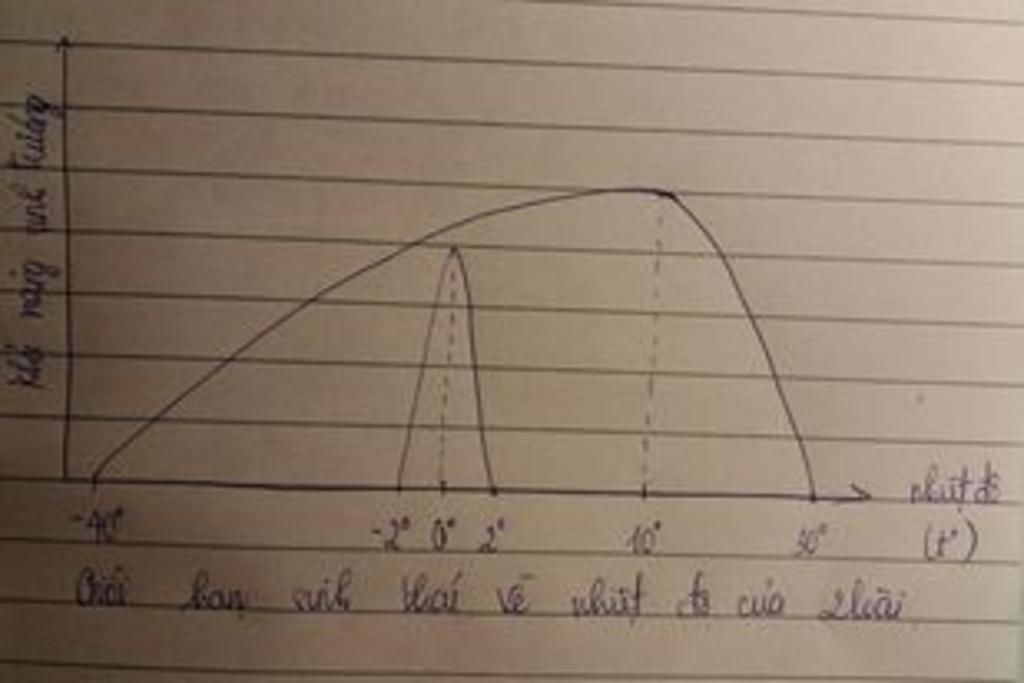 Khả năng sinh trưởng
nhiệt độ
(t°)
-40°
-2°
0°
2°
10°
30°
Giới hạn sinh thái về nhiệt độ của 2 loài